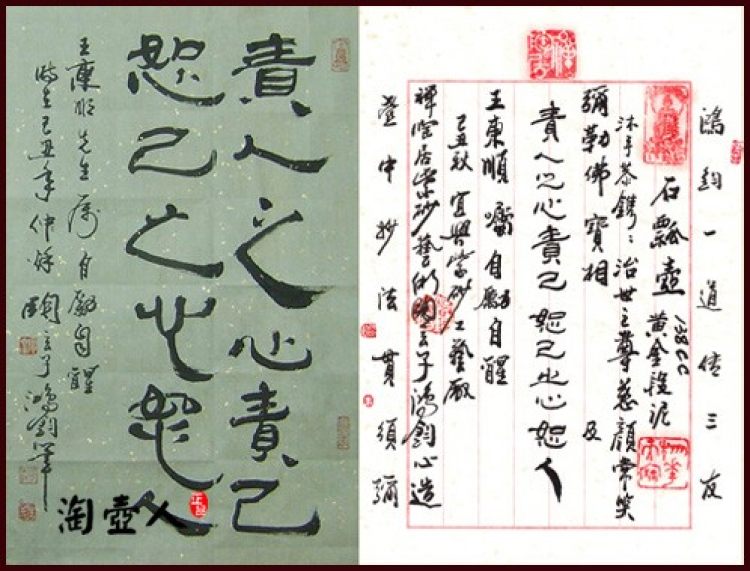 責人之心責己
恕己之心恕人
王東順先生属自勵自醒
時在己丑年仲秋 陶玄子鴻鈞筆
淘壺人
鴻鈞一道傳三友
石瓢壺 黃金段泥 138CC
沐手恭鐫：治世主尊慈顏常笑 及
彌勒佛寶相
責人之心責己 恕己之心恕人
王東順囑自勵自醒
己丑秋 宜興紫砂工藝廠
居紫砂藝術陶玄子鴻鈞心造
壺中妙法貫須彌